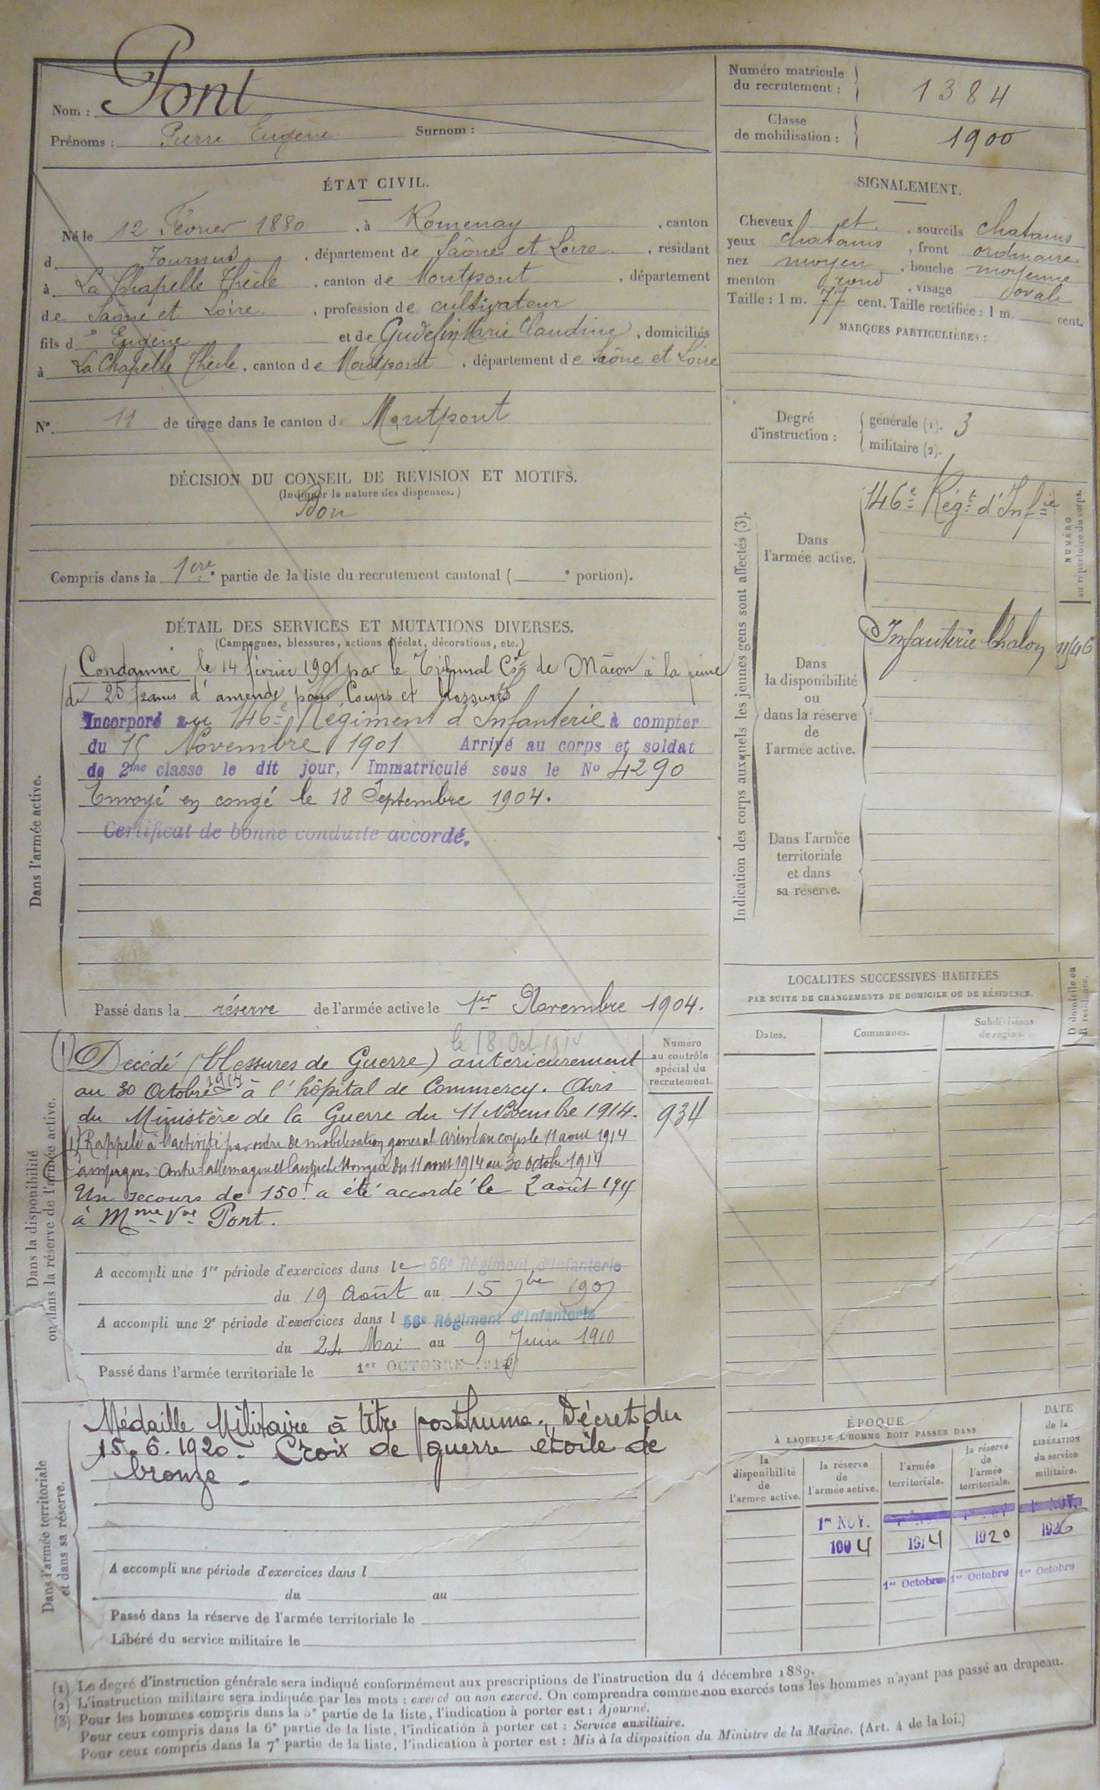 Nom : Pont
Prénoms : Pierre Eugène Surnom :
Numéro matricule
du recrutement : 1384
Classe
de mobilisation : 1900
ÉTAT CIVIL.
Né le 12 Février 1880, à Romenay, canton
d Tournus, département de Saône et Loire, résidant
à La Chapelle Thècle, canton de Montpont, département
de Saône et Loire, profession de cultivateur
fils d' Eugène et de Gudefin Marie Claudine, domiciliés
à La Chapelle Thècle, canton de Montpont, département de Saône et Loire
N° 11 de tirage dans le canton de Montpont
DÉCISION DU CONSEIL DE REVISION ET MOTIFS.
(Indiquer la nature des dispenses.)
Bon
Compris dans la 1ère partie de la liste du recrutement cantonal ( e portion).
SIGNALEMENT.
Cheveux et, sourcils chatains
yeux chatains, front ordinaire
nez moyen, bouche moyenne
menton rond, visage oval
Taille : 1 m. 77 cent. Taille rectifiée : 1 m. cent.
MARQUES PARTICULIÈRES :
Degré
d'instruction :
générale (1). 3
militaire (2).
DÉTAIL DES SERVICES ET MUTATIONS DIVERSES.
(Campagnes, blessures, actions d'éclat, décorations, etc.)
Dans l'armée active.
Condamné le 14 février 1901 par le Tribunal Cel de Mâcon à la peine
de 25 francs d'amende pour Coups et blessures
Incorporé au 146e Régiment d'Infanterie à compter
du 15 Novembre 1901 Arrivé au corps et soldat
de 2me classe le dit jour, Immatriculé sous le No 4290
Envoyé en congé le 18 Septembre 1904.
Certificat de bonne conduite accordé.
Passé dans la réserve de l'armée active le 1er Novembre 1904.
Indication des corps auxquels les jeunes gens sont affectés (3).
Dans
l'armée active.
146e Régt d'Infie
NUMÉRO
au répertoire du corps.
Dans
la disponibilité
ou
dans la réserve
de
l'armée active.
Infanterie Chalon
Dans l'armée
territoriale
et dans
sa réserve.
LOCALITÉS SUCCESSIVES HABITÉES
PAR SUITE DE CHANGEMENTS DE DOMICILE OU DE RÉSIDENCE.
Dates. Communes. Subdivisions
de région.
D domicile ou
R résidence.
Dans la disponibilité
ou dans la réserve de l'armée active.
Numéro
au contrôle
spécial du
recrutement.
934
le 18 Oct 1914
(1) Décédé (blessures de Guerre) antérieurement
au 30 Octobre 1914 à l'hôpital de Commercy. Avis
du Ministère de la Guerre du 11 Novembre 1914.
(1) Rappelé à l'activité par ordre de mobilisation général arrivé au corps le 11 aout 1914
Campagnes : Contre l'allemagne et l'autriche Hongrie du 11 aout 1914 au 30 octobre 1914
Un secours de 150f a été accordé le 2 août
à Mme Vve Pont.
A accompli une 1re période d'exercices dans le 56e Régiment d'Infanterie
du 19 Août au 15 7bre 1907
A accompli une 2e période d'exercices dans l 56e Régiment d'Infanterie
du 24 Mai au 9 Juin 1910
Passé dans l'armée territoriale le 1er OCTOBRE
Dans l'armée territoriale
et dans sa réserve.
Médaille Militaire à titre posthume. Décret du
15.6.1920 - Croix de guerre étoile de
bronze -
A accompli une période d'exercices dans l
du au
Passé dans la réserve de l'armée territoriale le
Libéré du service militaire le
ÉPOQUE
À LAQUELLE L'HOMME DOIT PASSER DANS
DATE
de la
LIBÉRATION
du service
militaire.
la
disponibilité
de
l'armée active.
la réserve
de
l'armée active.
l'armée
territoriale.
la réserve
de
l'armée
territoriale.
1er NOV. 1er NOV. 1er NOV. 1er NOV.
1904 1914 1920 1926
1er Octobre 1er Octobre 1er Octobre
(1) Le degré d'instruction générale sera indiqué conformément aux prescriptions de l'instruction du 4 décembre 1889.
(2) L'instruction militaire sera indiquée par les mots : exercé ou non exercé. On comprendra comme non exercés tous les hommes n'ayant pas passé au drapeau.
(3) Pour les hommes compris dans la 5e partie de la liste, l'indication à porter est : Ajourné.
Pour ceux compris dans la 6e partie de la liste, l'indication à porter est : Service auxiliaire.
Pour ceux compris dans la 7e partie de la liste, l'indication à porter est : Mis à la disposition du Ministre de la Marine. (Art. 4 de la loi.)